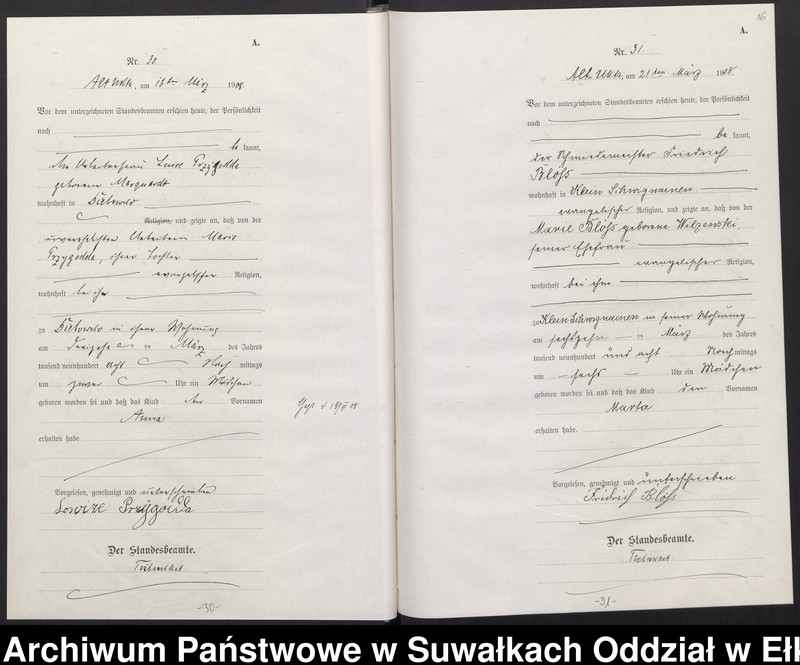 A.
Nr. 30
Alt Ukta, am 16ten März 1908.
Vor dem unterzeichneten Standesbeamten erschien heute, der Persönlichkeit
nach
be kannt,
die Przygodda
geborene Marquardt
wohnhaft in
Religion, und zeigte an, daß von der
unverehelichten Arbeiterin Marie
Przygodda, ihrer Tochter
evangelischer Religion,
wohnhaft bei ihr
zu in ihrer Wohnung
am dreizehn en März des Jahres
tausend neunhundert acht Nach mittags
um zwei Uhr ein Mädchen
geboren worden sei und daß das Kind den Vornamen
Anna
erhalten habe.
Vorgelesen, genehmigt und unterschrieben
Der Standesbeamte.
-30-
A.
Nr. 31
Alt Ukta, am 21ten März 1908.
Vor dem unterzeichneten Standesbeamten erschien heute, der Persönlichkeit
nach
be kannt,
der Schmiedemeister Friedrich
Blöhs
wohnhaft in Klein
evangelischer Religion, und zeigte an, daß von der
Marie Blöhs geborene
seiner Ehefrau
evangelischer Religion,
wohnhaft bei ihm
zu Klein in seiner Wohnung
am sechszehn en März des Jahres
tausend neunhundert und acht Nach mittags
um sechs Uhr ein Mädchen
geboren worden sei und daß das Kind den Vornamen
Marta
erhalten habe.
Vorgelesen, genehmigt und unterschrieben
Fridrich Blöhs
Der Standesbeamte.
-31-
Archiwum Państwowe w Suwałkach Oddział w Eł